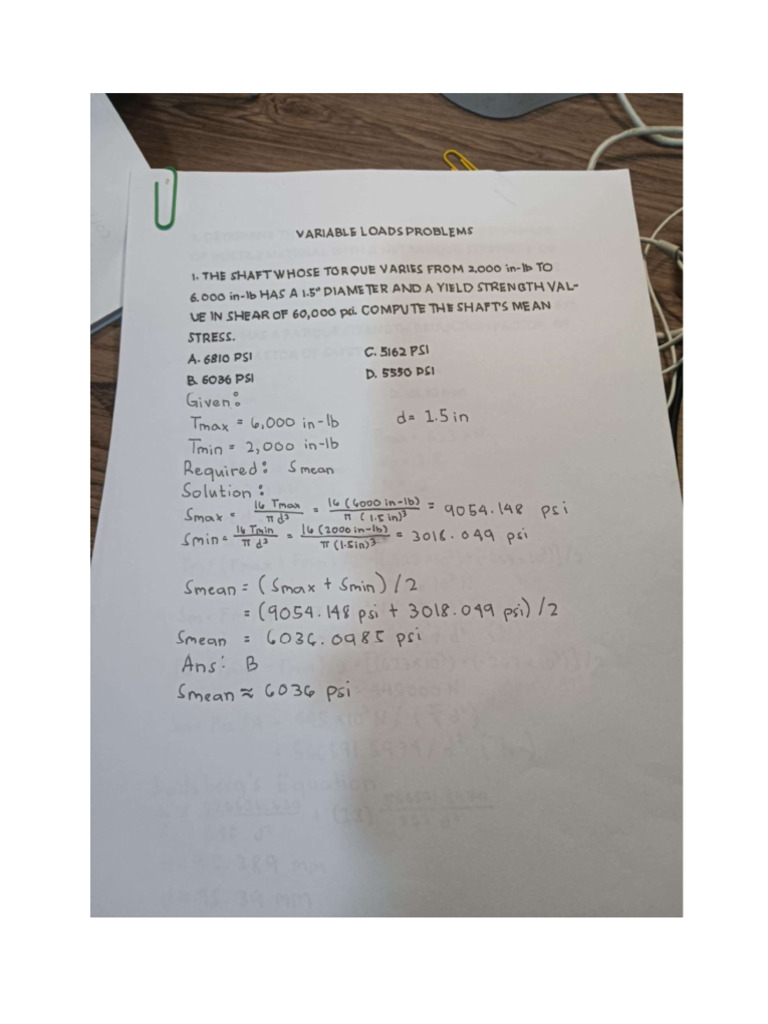 VARIABLE LOADS PROBLEMS
1. THE SHAFT WHOSE TORQUE VARIES FROM 2,000 in-lb TO
6.000 in-lb HAS A 1.5" DIAMETER AND A YIELD STRENGTH VAL-
UE IN SHEAR OF 60,000 psi. COMPUTE THE SHAFT'S MEAN
STRESS.
A. 6810 PSI C. 5162 PSI
B. 6036 PSI D. 5550 PSI
Given:
Tmax = 6,000 in-lb d= 1.5 in
Tmin = 2,000 in-lb
Required: Smean
Solution:
Smax = 16 Tmax / π d³ = 16 (6000 in-lb) / π (1.5 in)³ = 9054.148 psi
Smin = 16 Tmin / π d³ = 16 (2000 in-lb) / π (1.5in)³ = 3018.049 psi
Smean = (Smax + Smin) /2
= (9054.148 psi + 3018.049 psi) /2
Smean = 6036.0985 psi
Ans: B
Smean ≈ 6036 psi